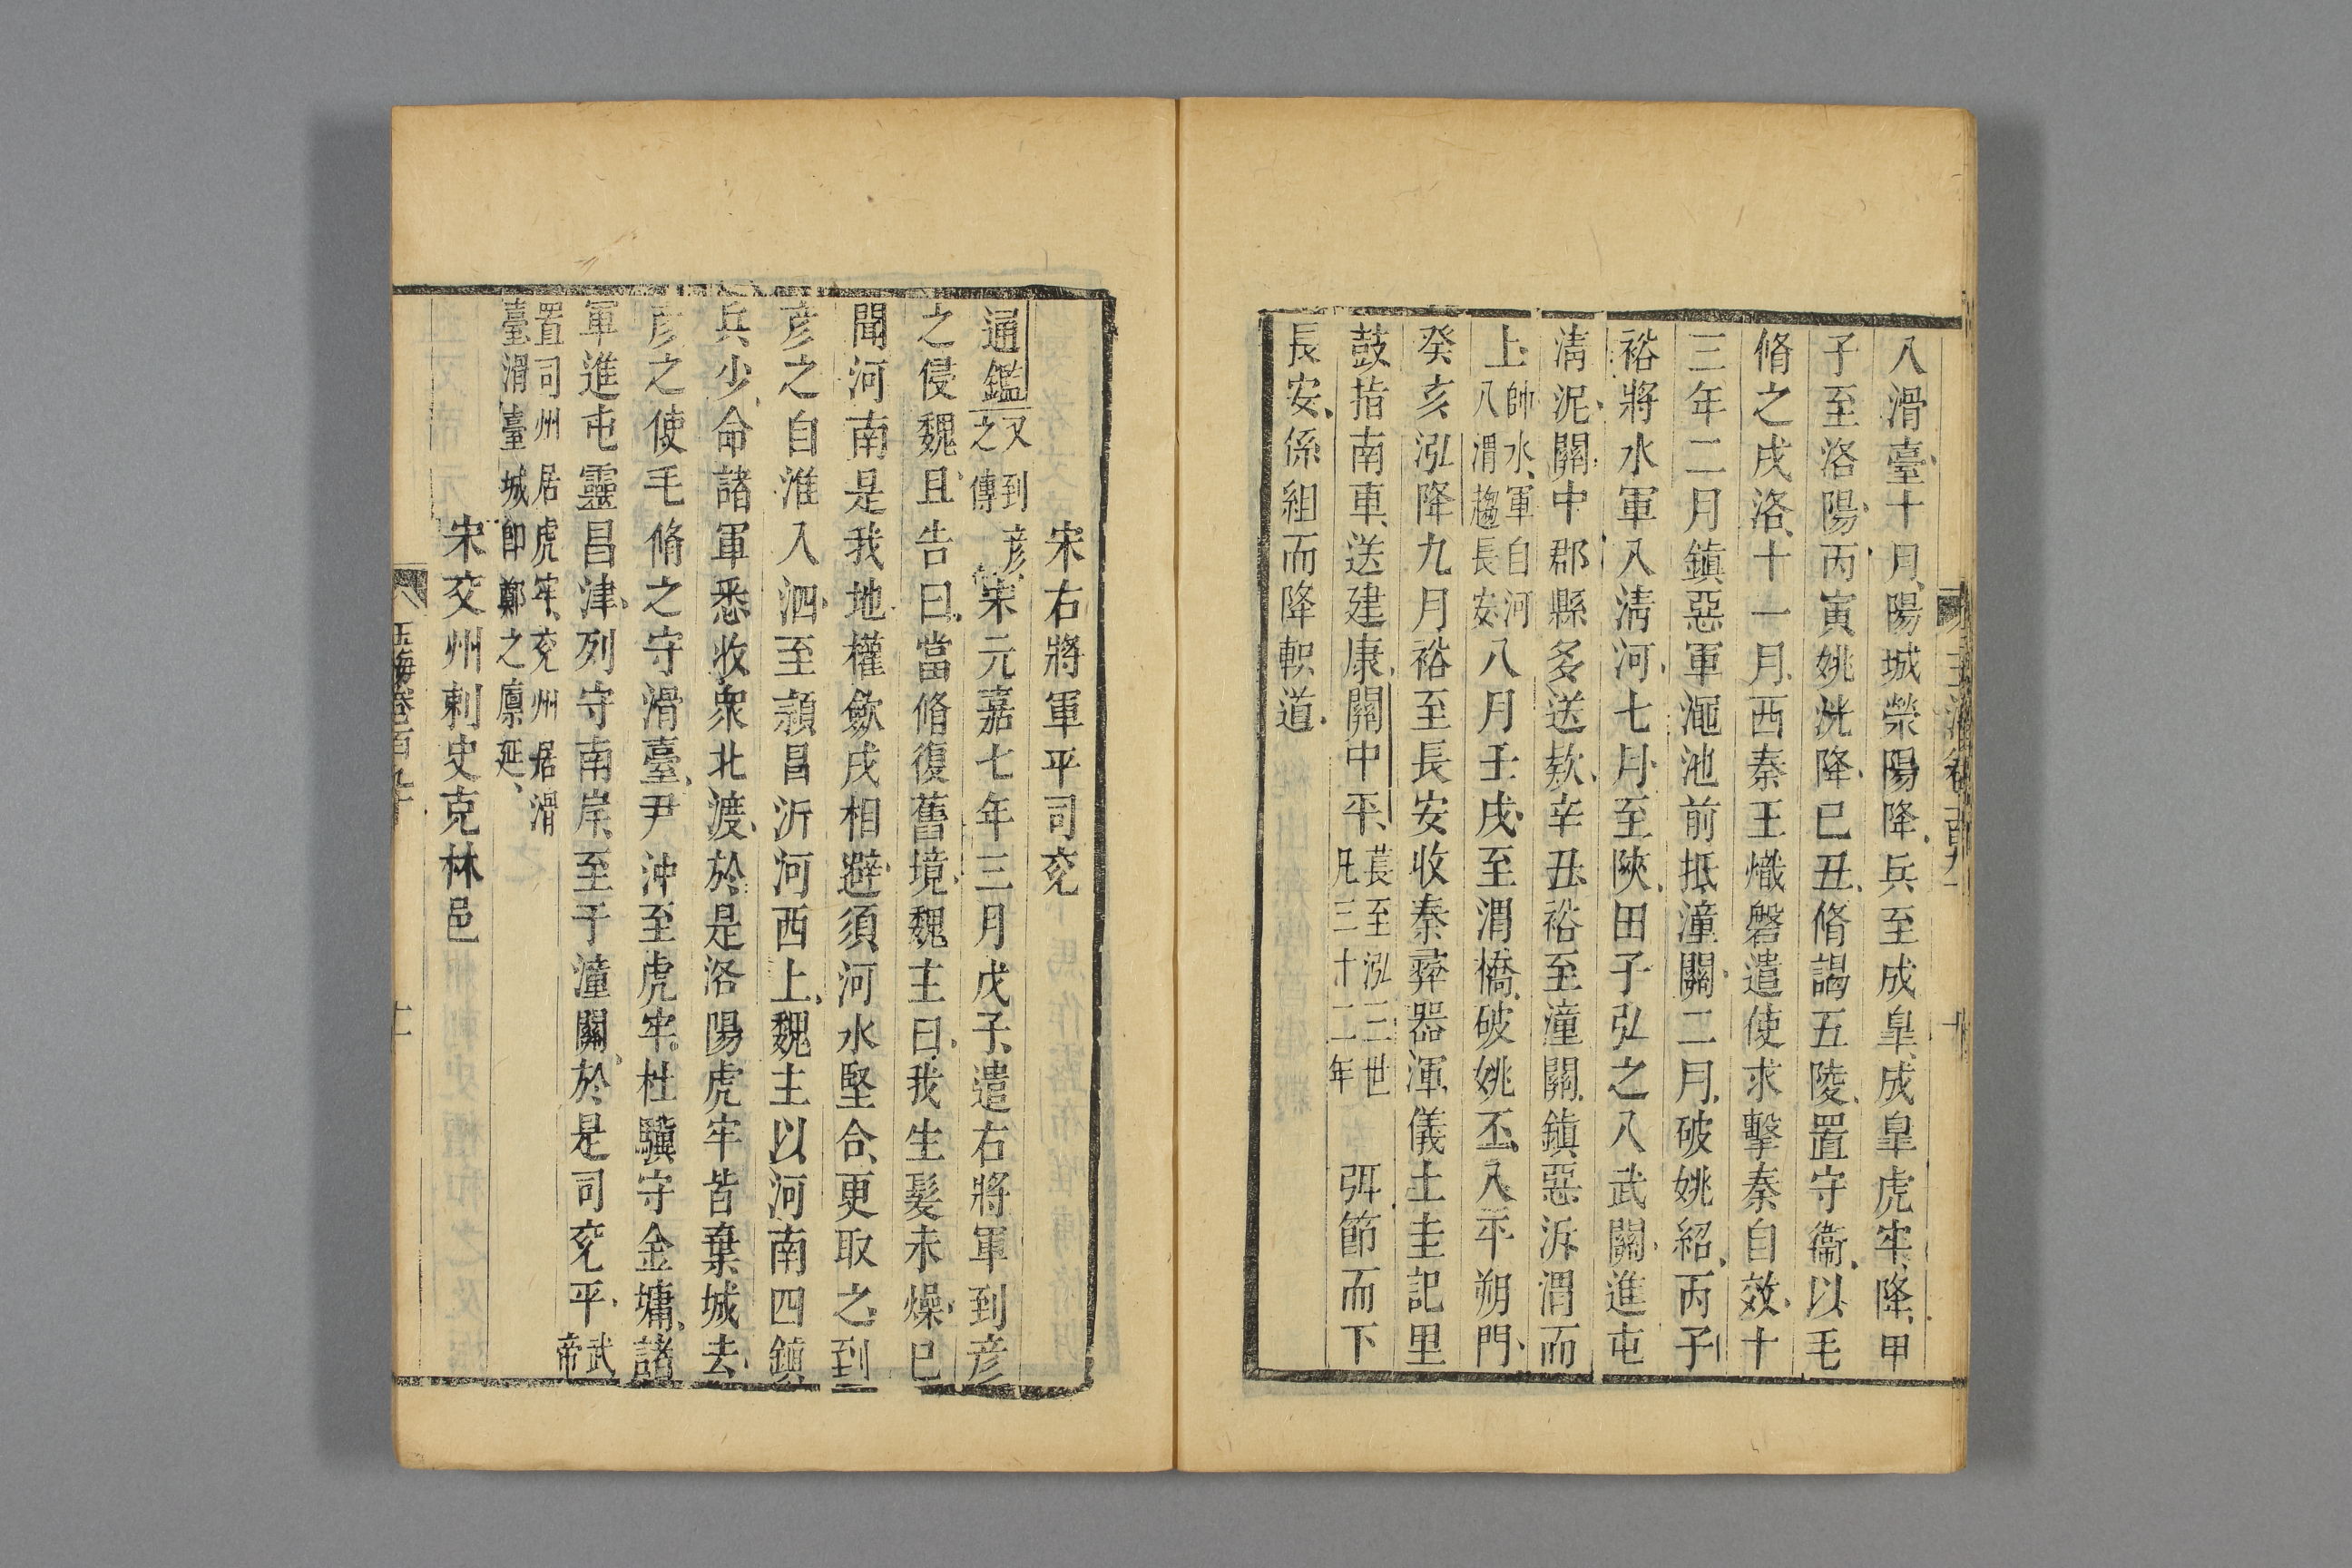 入滑臺十月陽城滎陽降兵至成皐成皐虎牢降甲
子至洛陽丙寅姚洸降己丑脩謁五陵置守衞以毛
脩之戍洛十一月西秦王熾磐遣使求擊秦自效十
三年二月鎮惡軍澠池前抵潼關二月破姚紹丙子
裕將水軍入淸河七月至陝田子弘之入武關進屯
淸泥關中郡縣多送款辛丑裕至潼關鎮惡泝渭而
上帥水軍自河入渭趨長安八月壬戌至渭橋破姚丕入平朔門
癸亥泓降九月裕至長安收秦彝器渾儀土圭記里
鼓指南車送建康關中平萇至泓三世凡三十二年 弭節而下
長安係組而降軹道
宋右將軍平司兗
通鑑又到彦之傳宋元嘉七年三月戊子遣右將軍到彦
之侵魏且告曰當脩復舊境魏主曰我生髮未燥已
聞河南是我地權斂戍相避須河水堅合更取之到
彦之自淮入泗至潁昌泝河西上魏主以河南四鎮
兵少命諸軍悉收衆北渡於是洛陽虎牢皆棄城去
彦之使毛脩之守滑臺尹沖至虎牢杜驥守金墉諸
軍進屯靈昌津列守南岸至于潼關於是司兗平武帝
置司州居虎牢兗州居滑
臺滑臺城卽鄭之廪延
宋交州刺史克林邑
玉海卷百九十